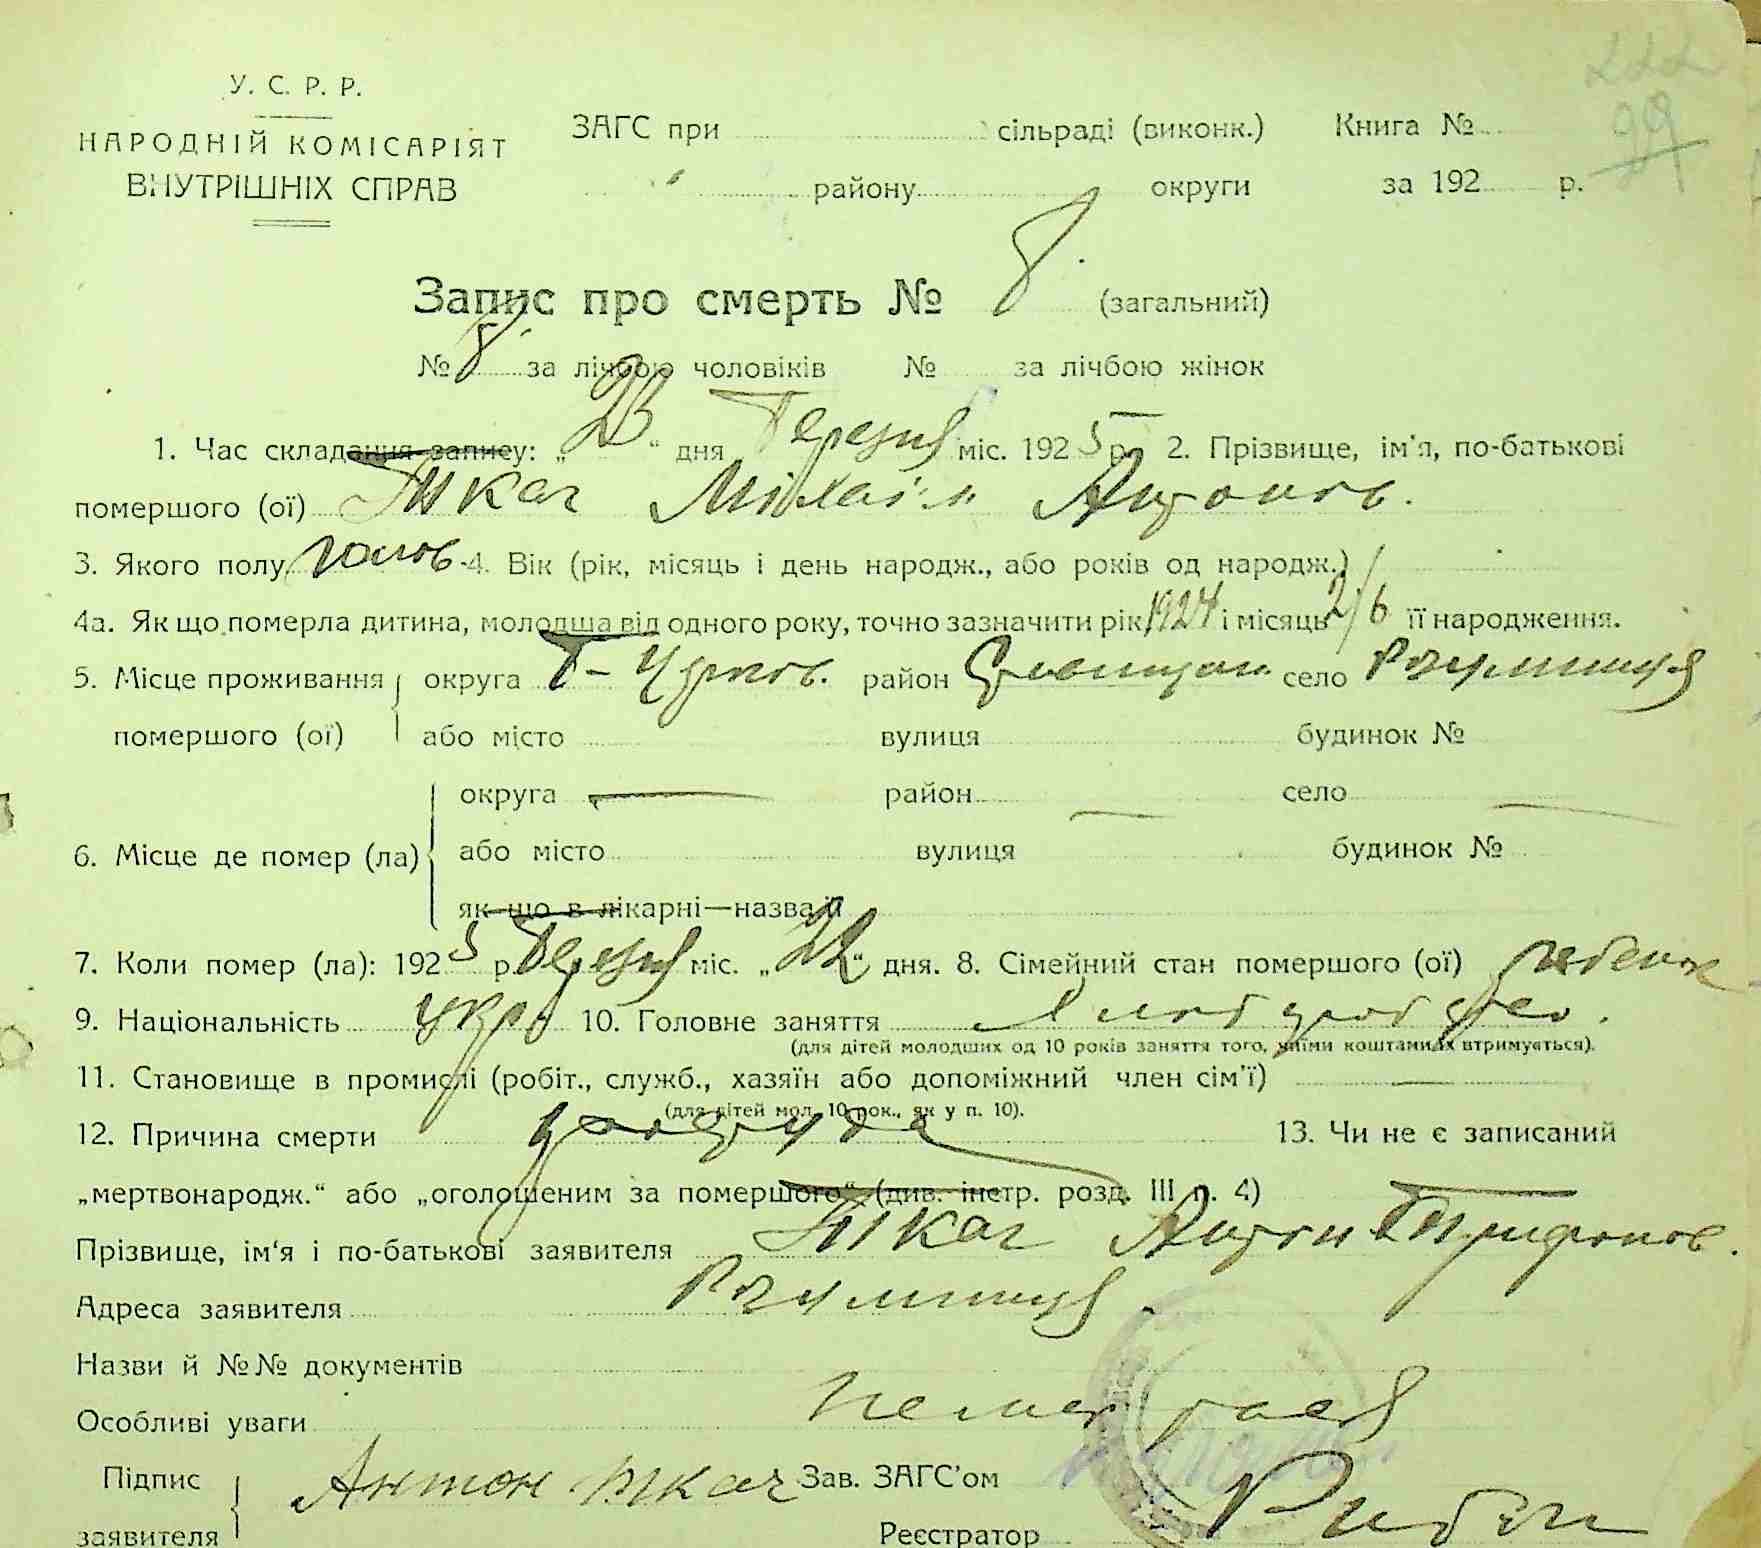 222
29
У. С. Р. Р.
НАРОДНІЙ КОМІСАРІЯТ
ВНУТРІШНІХ СПРАВ
ЗАГС при сільраді (виконк.) Книга №
району округи за 192 р.
Запис про смерть № 8 (загальний)
№ 8 за лічбою чоловіків № за лічбою жінок
1. Час складання запису: „23“ дня Березня міс. 1925 р. 2. Прізвище, ім'я, по-батькові
помершого (ої) Ткач Міхаіл Антонов.
3. Якого полу 4. Вік (рік, місяць і день народж., або років од народж.)
4а. Як що померла дитина, молодша від одного року, точно зазначити рік 1924 і місяць 2/6 її народження.
5. Місце проживання округа Б-Церков. район село
помершого (ої) або місто вулиця будинок №
округа район село
6. Місце де помер (ла) або місто вулиця будинок №
як що в лікарні—назва її
7. Коли помер (ла): 1925 р. Березня міс. „22“ дня. 8. Сімейний стан помершого (ої) ребенок
9. Національність укр. 10. Головне заняття
(для дітей молодших од 10 років заняття того, чиїми коштами їх втримується).
11. Становище в промислі (робіт., служб., хазяїн або допоміжний член сім'ї)
(для дітей мол. 10 рок., як у п. 10).
12. Причина смерти 13. Чи не є записаний
„мертвонародж.“ або „оголошеним за помершого“ (див. інстр. розд. III п. 4)
Прізвище, ім'я і по-батькові заявителя Ткач Антон Трифонов.
Адреса заявителя
Назви й №№ документів
Особливі уваги
Підпис Антон Ткач Зав. ЗАГС'ом
заявителя Реєстратор